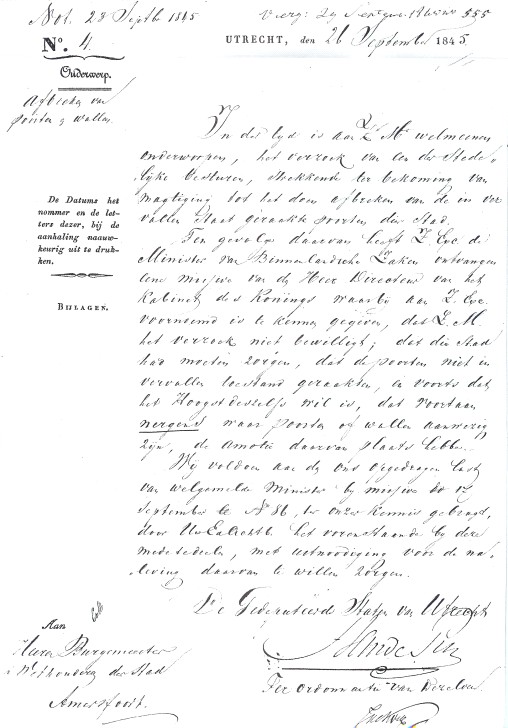 Not. 28 Septb 1845
No. 4.
UTRECHT, den 26 September 1845
Onderwerp.
Afbreken van
poorten & wallen
De Datums het
nommer en de let-
ters dezer, bij de
aanhaling naauw-
keurig uit te druk-
ken.
BIJLAGEN.
In der tyd is aan Z. M. welmeenen
onderworpen, het verzoek van een der Stede-
lyke besturen, strekkende ter bekoming van
magtiging tot het doen afbreken van de in ver
vallen staat geraakte poorten dier Stad.
Ten gevolge daarvan heeft Z. Exc. de
Minister van Binnenlandsche Zaken ontvangen
eene missive van den Heer Directeur van het
Kabinet des Konings waarbij aan Z. Exc.
voornoemd is te kennen gegeven, dat Z. M.
het verzoek niet bewilligt; dat die Stad
had moeten zorgen, dat de poorten niet in
vervallen toestand geraakten, en voorts dat
het Hoogstdeszelfs wil is, dat voortaan
nergens waar poorten of wallen aanwezig
zyn, de amotie daarvan plaats hebbe.
Wij voldoen aan den ons opgedragen last
van welgemelde Minister by missive do 12
September te No 86, ter onzer kennis gebragt,
door UwEdAchtb. het vorenstaande by deze
mede te deelen, met uitnoodiging voor de na-
leving daarvan te willen zorgen.
De Gedeputeerde Staten van Utrecht
Ter ordonnantie van Dezelve
Aan
Heeren Burgemeester
& Wethouderen der Stad
Amersfoort.